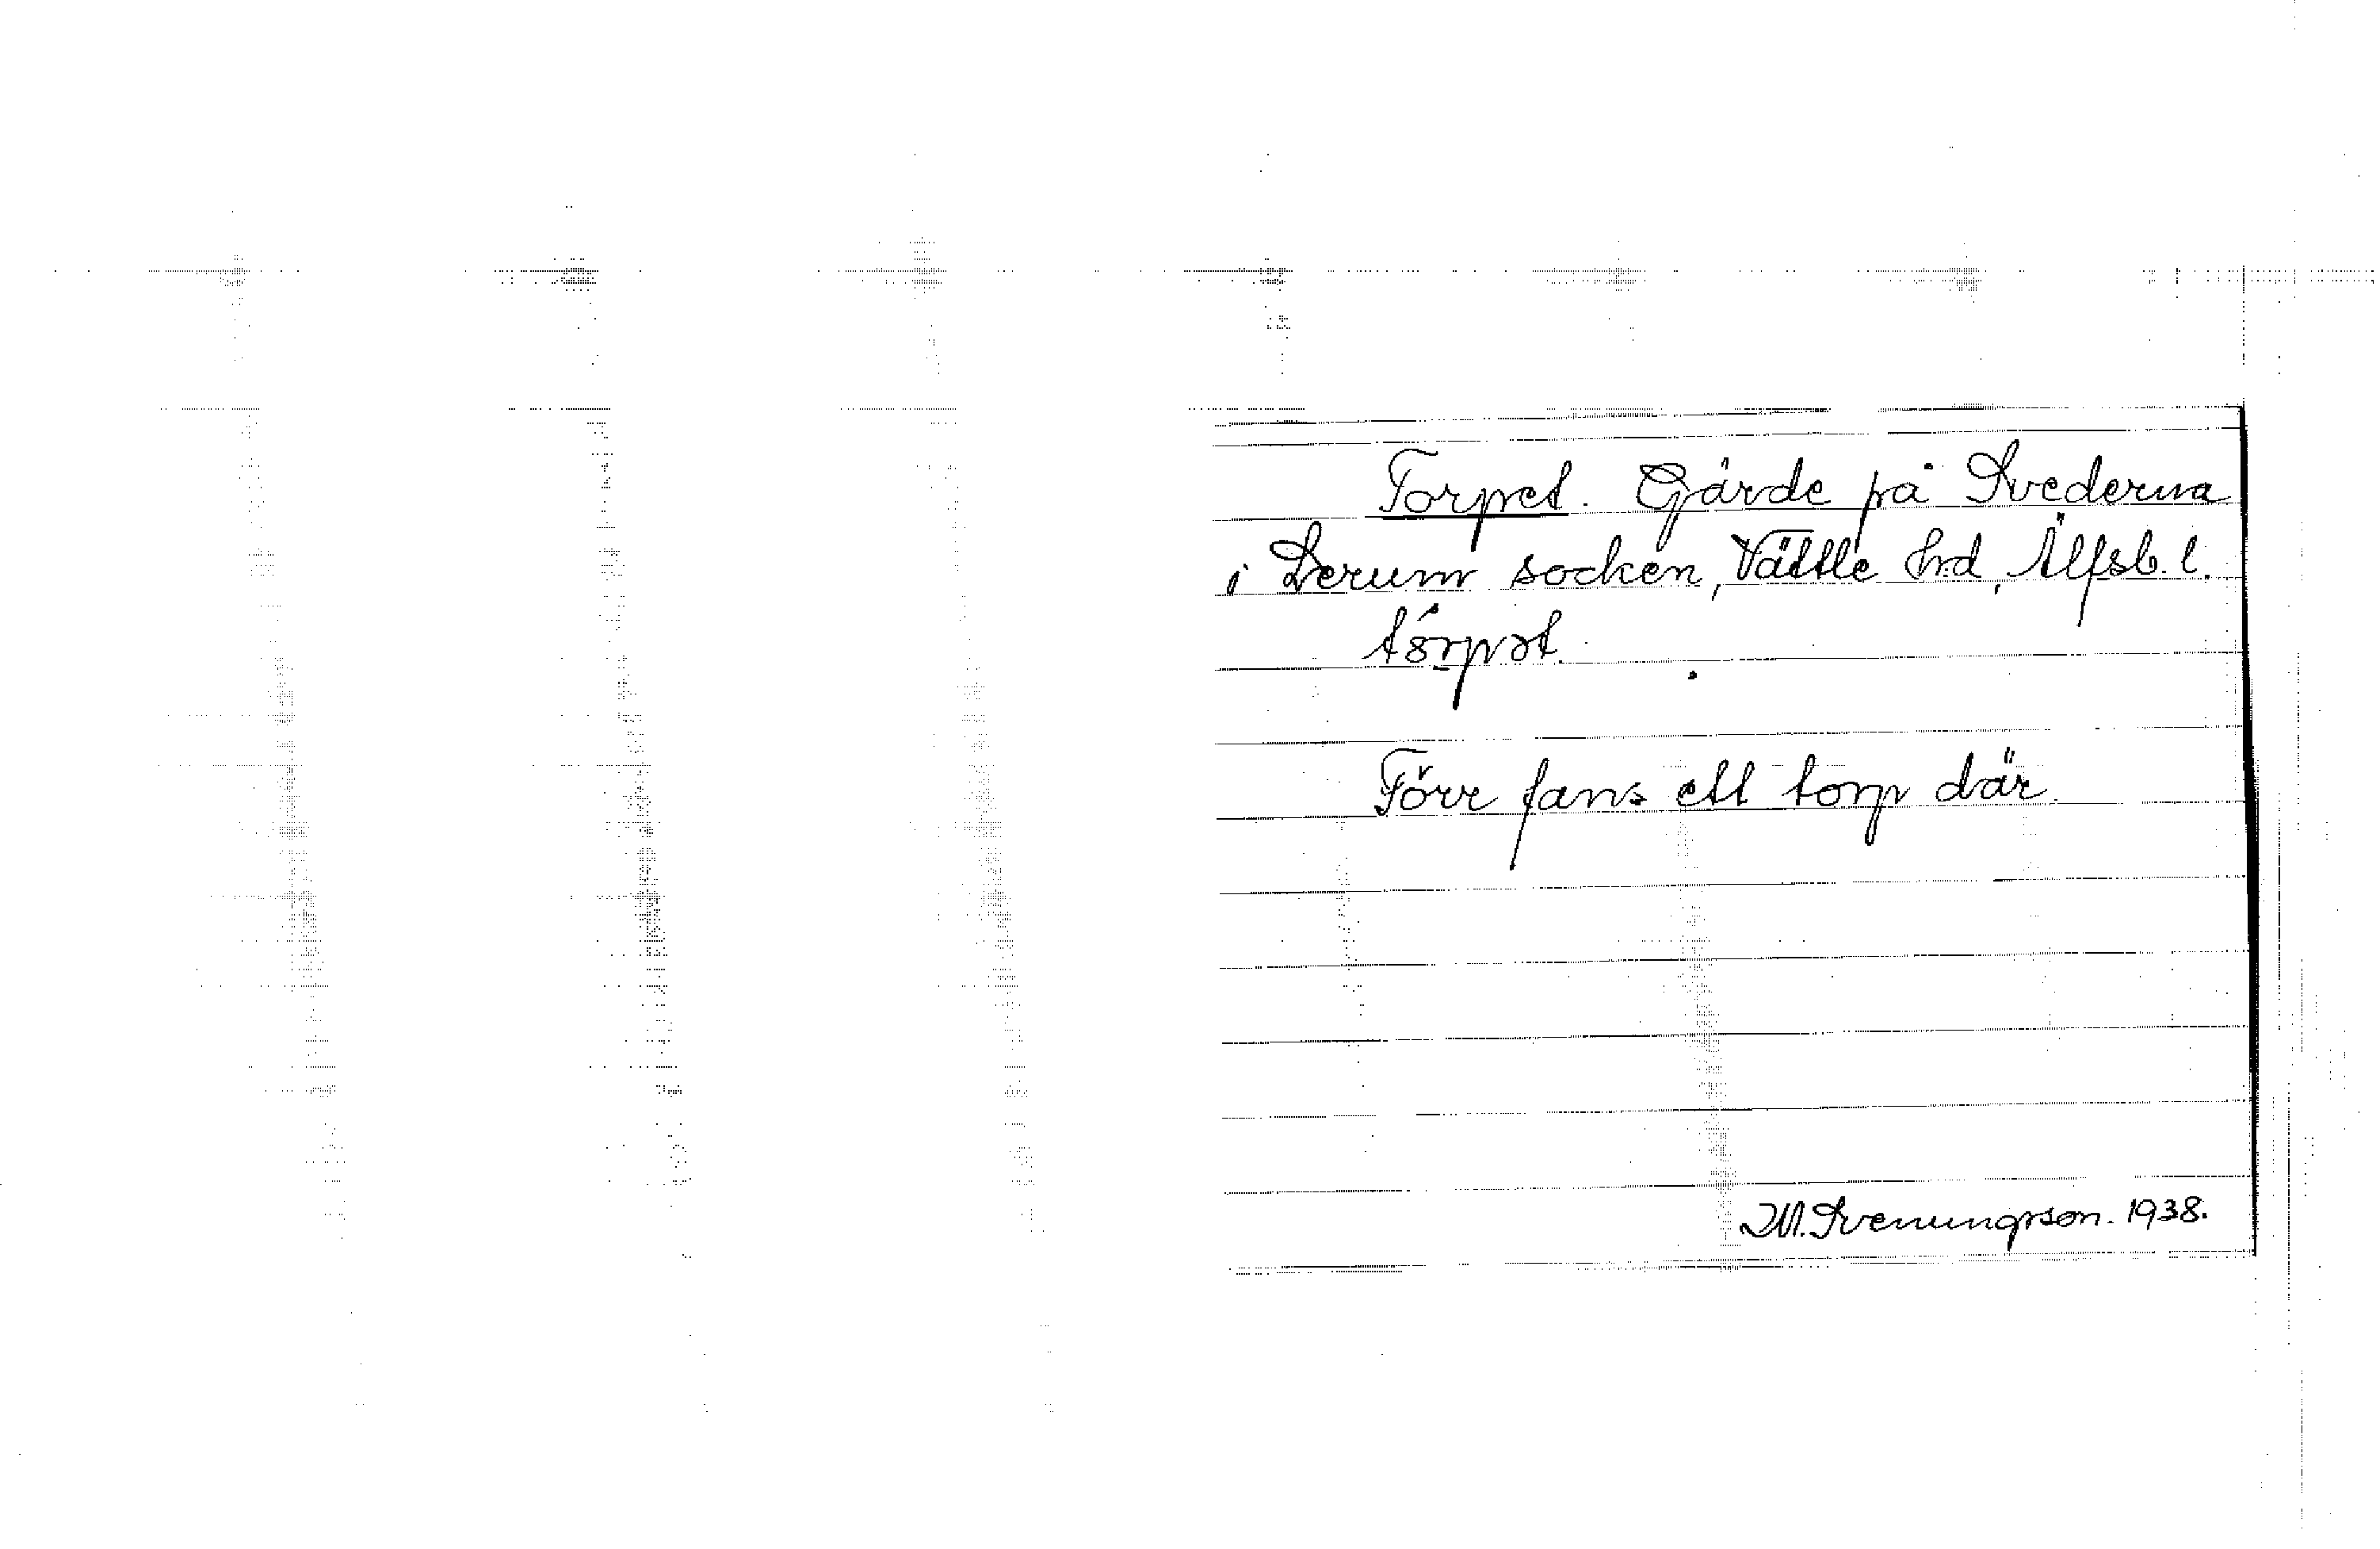 Torpet. Gärde på Svederna
i Lerum socken, Vättle hrd, Älfsb. l.
tórpət.
Förr fans ett torp där.
M. Svenungsson. 1938.